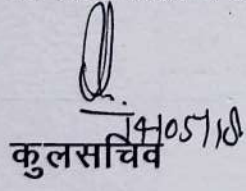 14/05/18
कुलसचिव